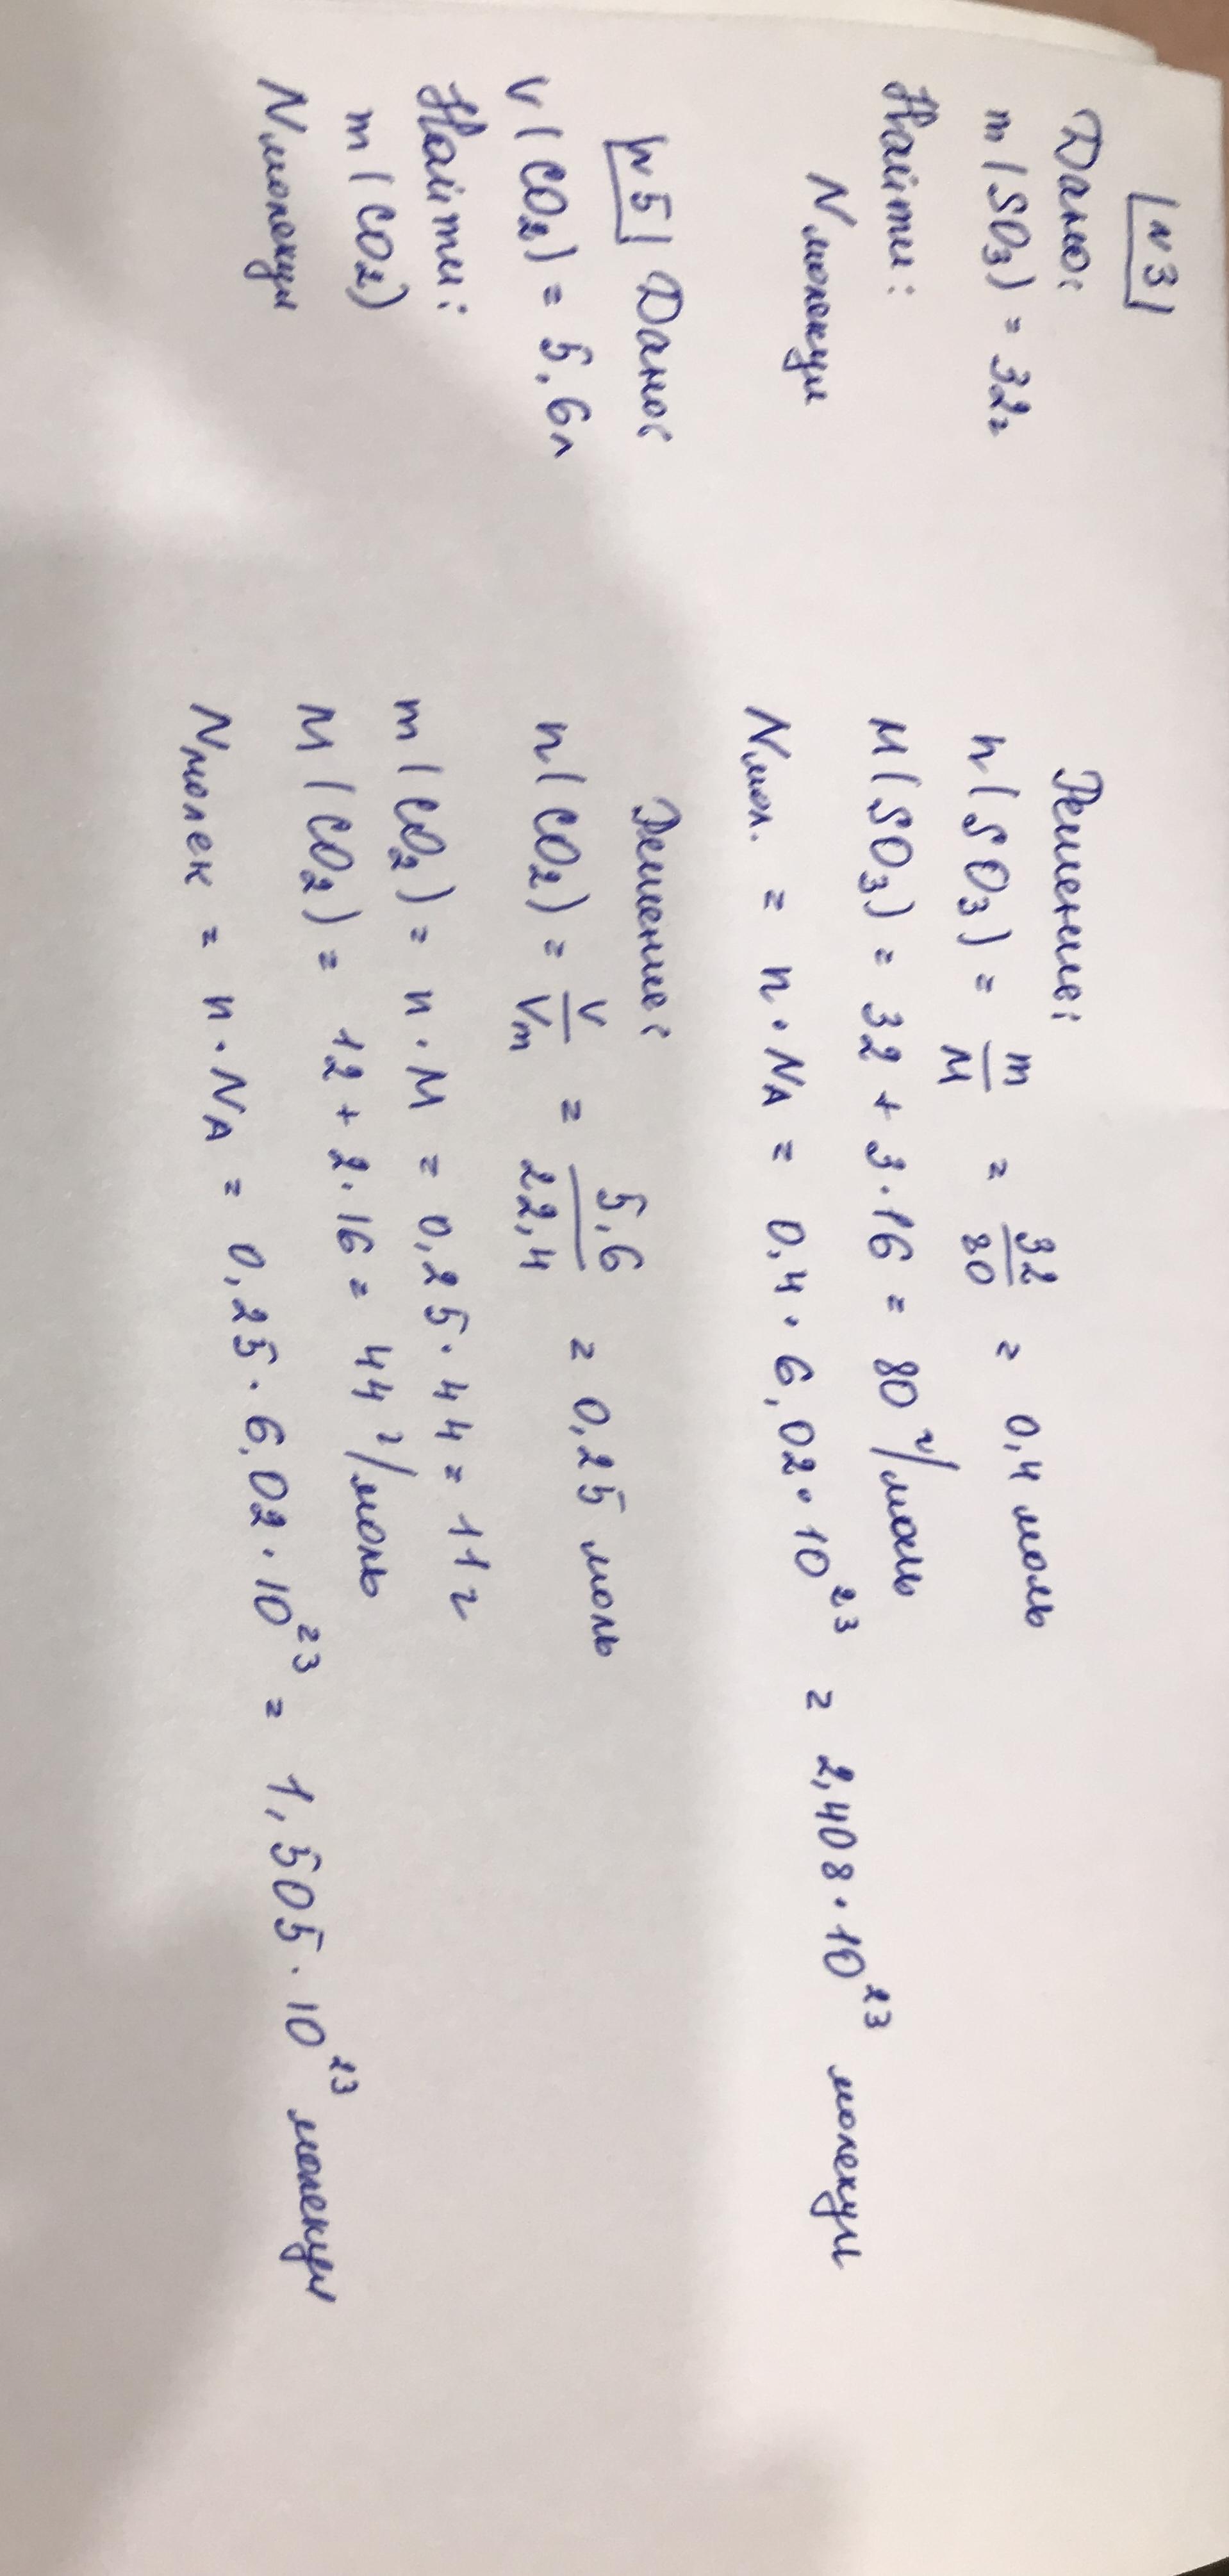 №3
Дано:
m(SO₃) = 32г
Найти:
N молекул
Решение:
n(SO₃) = m/M = 32/80 = 0,4 моль
M(SO₃) = 32 + 3·16 = 80 г/моль
Nмол. = n·NA = 0,4·6,02·10²³ = 2,408·10²³ молекул
№5 Дано:
V(CO₂) = 5,6л
Найти:
m(CO₂)
N молекул
Решение:
n(CO₂) = V/Vm = 5,6/22,4 = 0,25 моль
m(CO₂) = n·M = 0,25·44 = 11г
M(CO₂) = 12+2·16 = 44 г/моль
Nмолек = n·NA = 0,25·6,02·10²³ = 1,505·10²³ молекул